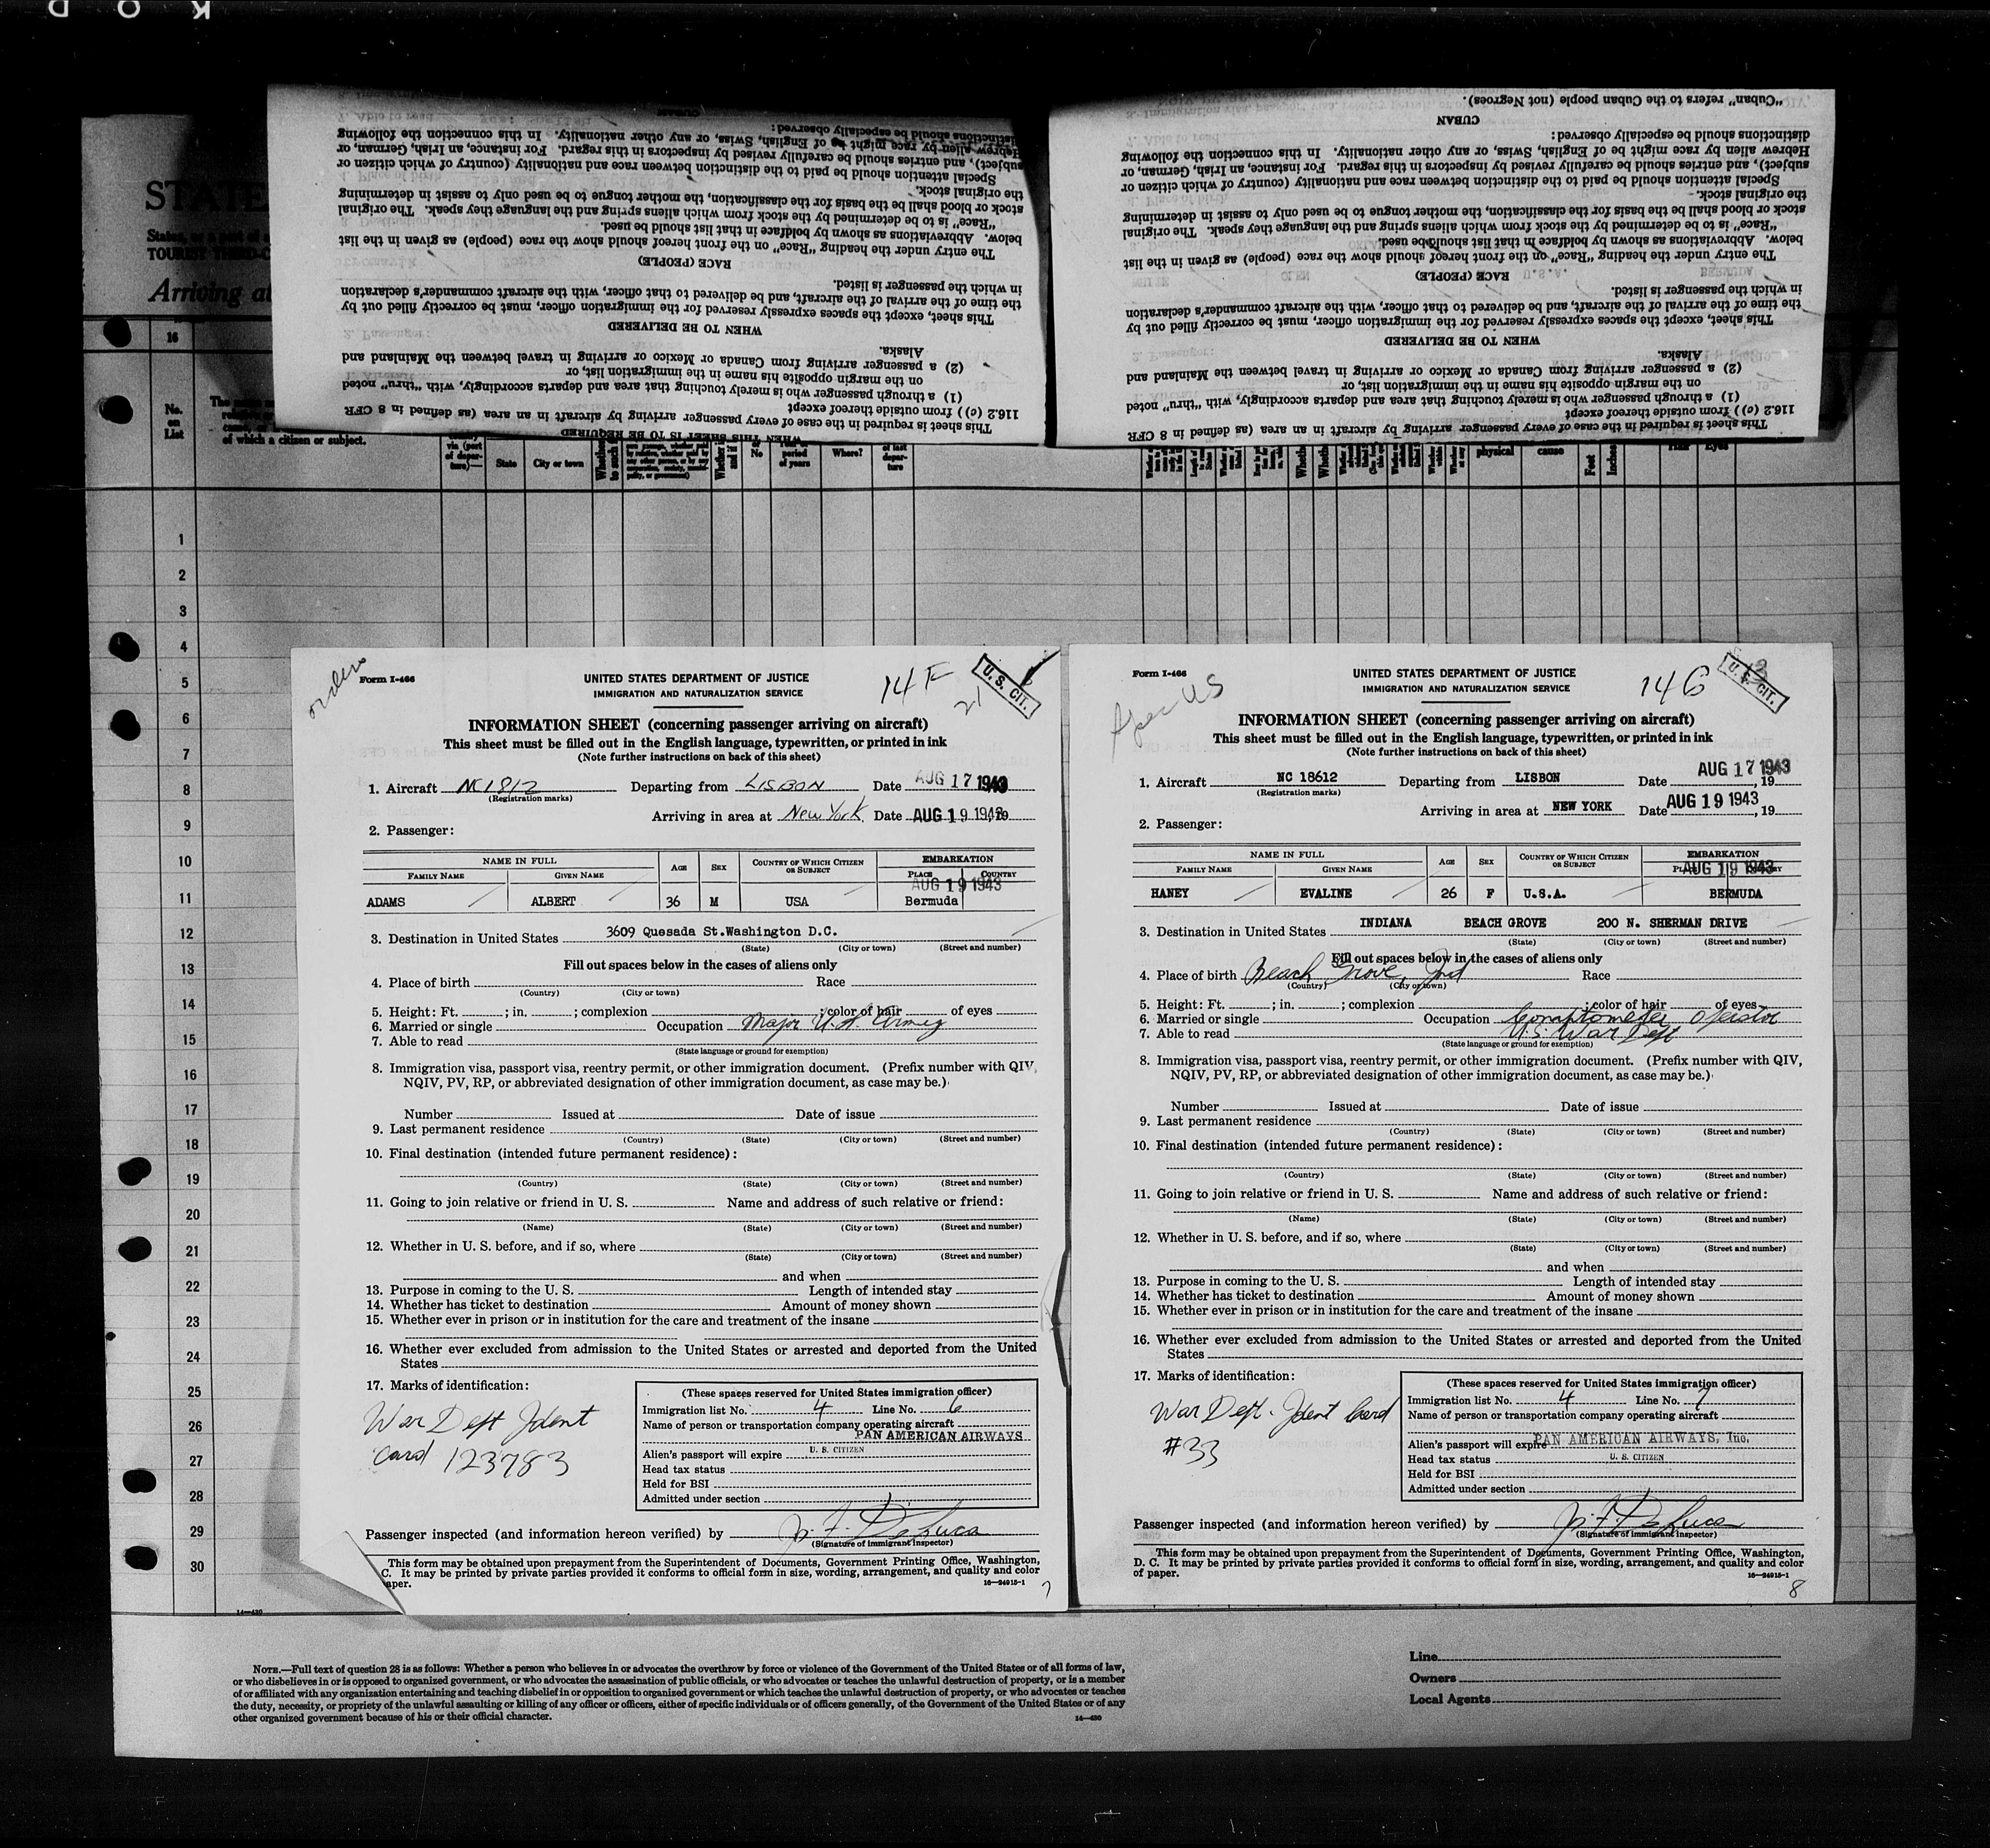 STATE
TOURIST THIRD-C
Arriving at
16
No.
on
List
of which a citizen or subject.
State
City or town
No
period
of years
Where?
of last
depar-
ture
physical
cause
Feet
Inches
Eyes
This sheet is required in the case of every passenger arriving by aircraft in an area (as defined in 8 CFR
116.2 (c) ) from outside thereof except
(1) a through passenger who is merely touching that area and departs accordingly, with "thru" noted
on the margin opposite his name in the immigration list, or
(2) a passenger arriving from Canada or Mexico or arriving in travel between the Mainland and
Alaska.
WHEN TO BE DELIVERED
This sheet, except the spaces expressly reserved for the immigration officer, must be correctly filled out by
the time of the arrival of the aircraft, and be delivered to that officer, with the aircraft commander's declaration
in which the passenger is listed.
RACE (PEOPLE)
The entry under the heading "Race" on the front hereof should show the race (people) as given in the list
below. Abbreviations as shown by boldface in that list should be used.
"Race" is to be determined by the stock from which aliens spring and the language they speak. The original
stock or blood shall be the basis for the classification, the mother tongue to be used only to assist in determining
the original stock.
Special attention should be paid to the distinction between race and nationality (country of which citizen or
subject), and entries should be carefully revised by inspectors in this regard. For instance, an Irish, German, or
Hebrew alien by race might be of English, Swiss, or any other nationality. In this connection the following
distinctions should be especially observed:
CUBAN
This sheet is required in the case of every passenger arriving by aircraft in an area (as defined in 8 CFR
116.2 (c) ) from outside thereof except
(1) a through passenger who is merely touching that area and departs accordingly, with "thru" noted
on the margin opposite his name in the immigration list, or
(2) a passenger arriving from Canada or Mexico or arriving in travel between the Mainland and
Alaska.
WHEN TO BE DELIVERED
This sheet, except the spaces expressly reserved for the immigration officer, must be correctly filled out by
the time of the arrival of the aircraft, and be delivered to that officer, with the aircraft commander's declaration
in which the passenger is listed.
RACE (PEOPLE)
The entry under the heading "Race" on the front hereof should show the race (people) as given in the list
below. Abbreviations as shown by boldface in that list should be used.
"Race" is to be determined by the stock from which aliens spring and the language they speak. The original
stock or blood shall be the basis for the classification, the mother tongue to be used only to assist in determining
the original stock.
Special attention should be paid to the distinction between race and nationality (country of which citizen or
subject), and entries should be carefully revised by inspectors in this regard. For instance, an Irish, German, or
Hebrew alien by race might be of English, Swiss, or any other nationality. In this connection the following
distinctions should be especially observed:
CUBAN
"Cuban" refers to the Cuban people (not Negroes).
1
2
3
4
5
6
7
8
9
10
11
12
13
14
15
16
17
18
19
20
21
22
23
24
25
26
27
28
29
30
orders
Form I-466
UNITED STATES DEPARTMENT OF JUSTICE
IMMIGRATION AND NATURALIZATION SERVICE
14 F
21
U. S. CIT.
INFORMATION SHEET (concerning passenger arriving on aircraft)
This sheet must be filled out in the English language, typewritten, or printed in ink
(Note further instructions on back of this sheet)
1. Aircraft NC1812 Departing from LISBON Date AUG 17 1943
(Registration marks)
Arriving in area at New York Date AUG 19 1943, 19
2. Passenger:
NAME IN FULL AGE SEX COUNTRY OF WHICH CITIZEN OR SUBJECT EMBARKATION
FAMILY NAME GIVEN NAME PLACE COUNTRY
AUG 19 1943
ADAMS ALBERT 36 M USA Bermuda
3. Destination in United States 3609 Quesada St.Washington D.C.
(State) (City or town) (Street and number)
Fill out spaces below in the cases of aliens only
4. Place of birth Race
(Country) (City or town)
5. Height: Ft. ; in. ; complexion ; color of hair of eyes
6. Married or single Occupation Major U.S. Army
7. Able to read
(State language or ground for exemption)
8. Immigration visa, passport visa, reentry permit, or other immigration document. (Prefix number with QIV,
NQIV, PV, RP, or abbreviated designation of other immigration document, as case may be.)
Number Issued at Date of issue
9. Last permanent residence
(Country) (State) (City or town) (Street and number)
10. Final destination (intended future permanent residence):
(Country) (State) (City or town) (Street and number)
11. Going to join relative or friend in U. S. Name and address of such relative or friend:
(Name) (State) (City or town) (Street and number)
12. Whether in U. S. before, and if so, where
(State) (City or town) (Street and number)
and when
13. Purpose in coming to the U. S. Length of intended stay
14. Whether has ticket to destination Amount of money shown
15. Whether ever in prison or in institution for the care and treatment of the insane
16. Whether ever excluded from admission to the United States or arrested and deported from the United
States
17. Marks of identification:
War Dept Ident
Card 123783
(These spaces reserved for United States immigration officer)
Immigration list No. 4 Line No. 6
Name of person or transportation company operating aircraft
PAN AMERICAN AIRWAYS
Alien's passport will expire U. S. CITIZEN
Head tax status
Held for BSI
Admitted under section
Passenger inspected (and information hereon verified) by J. F. DeLuca
(Signature of immigrant inspector)
This form may be obtained upon prepayment from the Superintendent of Documents, Government Printing Office, Washington,
C. It may be printed by private parties provided it conforms to official form in size, wording, arrangement, and quality and color
aper.
16—24915-1
7
US
Form I-466
UNITED STATES DEPARTMENT OF JUSTICE
IMMIGRATION AND NATURALIZATION SERVICE
14 G
U. S. CIT.
INFORMATION SHEET (concerning passenger arriving on aircraft)
This sheet must be filled out in the English language, typewritten, or printed in ink
(Note further instructions on back of this sheet)
1. Aircraft NC 18612 Departing from LISBON Date AUG 17 1943, 19
(Registration marks)
Arriving in area at NEW YORK Date AUG 19 1943, 19
2. Passenger:
NAME IN FULL AGE SEX COUNTRY OF WHICH CITIZEN OR SUBJECT EMBARKATION
FAMILY NAME GIVEN NAME AUG 19 1943
HANEY EVALINE 26 F U.S.A. BERMUDA
3. Destination in United States INDIANA BEACH GROVE 200 N. SHERMAN DRIVE
(State) (City or town) (Street and number)
Fill out spaces below in the cases of aliens only
4. Place of birth Beach Grove, Ind Race
(Country) (City or town)
5. Height: Ft. ; in. ; complexion ; color of hair of eyes
6. Married or single Occupation Comptometer Operator
7. Able to read U.S. War Dept
(State language or ground for exemption)
8. Immigration visa, passport visa, reentry permit, or other immigration document. (Prefix number with QIV,
NQIV, PV, RP, or abbreviated designation of other immigration document, as case may be.)
Number Issued at Date of issue
9. Last permanent residence
(Country) (State) (City or town) (Street and number)
10. Final destination (intended future permanent residence):
(Country) (State) (City or town) (Street and number)
11. Going to join relative or friend in U. S. Name and address of such relative or friend:
(Name) (State) (City or town) (Street and number)
12. Whether in U. S. before, and if so, where
(State) (City or town) (Street and number)
and when
13. Purpose in coming to the U. S. Length of intended stay
14. Whether has ticket to destination Amount of money shown
15. Whether ever in prison or in institution for the care and treatment of the insane
16. Whether ever excluded from admission to the United States or arrested and deported from the United
States
17. Marks of identification:
War Dept. Ident Card
#33
(These spaces reserved for United States immigration officer)
Immigration list No. 4 Line No. 7
Name of person or transportation company operating aircraft
PAN AMERICAN AIRWAYS, Inc.
Alien's passport will expire
Head tax status U. S. CITIZEN
Held for BSI
Admitted under section
Passenger inspected (and information hereon verified) by J. F. DeLuca
(Signature of immigrant inspector)
This form may be obtained upon prepayment from the Superintendent of Documents, Government Printing Office, Washington,
D. C. It may be printed by private parties provided it conforms to official form in size, wording, arrangement, and quality and color
of paper.
16—24915-1
8
NOTE.—Full text of question 28 is as follows: Whether a person who believes in or advocates the overthrow by force or violence of the Government of the United States or of all forms of law,
or who disbelieves in or is opposed to organized government, or who advocates the assassination of public officials, or who advocates or teaches the unlawful destruction of property, or is a member
of or affiliated with any organization entertaining and teaching disbelief in or opposition to organized government or which teaches the unlawful destruction of property, or who advocates or teaches
the duty, necessity, or propriety of the unlawful assaulting or killing of any officer or officers, either of specific individuals or of officers generally, of the Government of the United States or of any
other organized government because of his or their official character.
14—430
Line
Owners
Local Agents